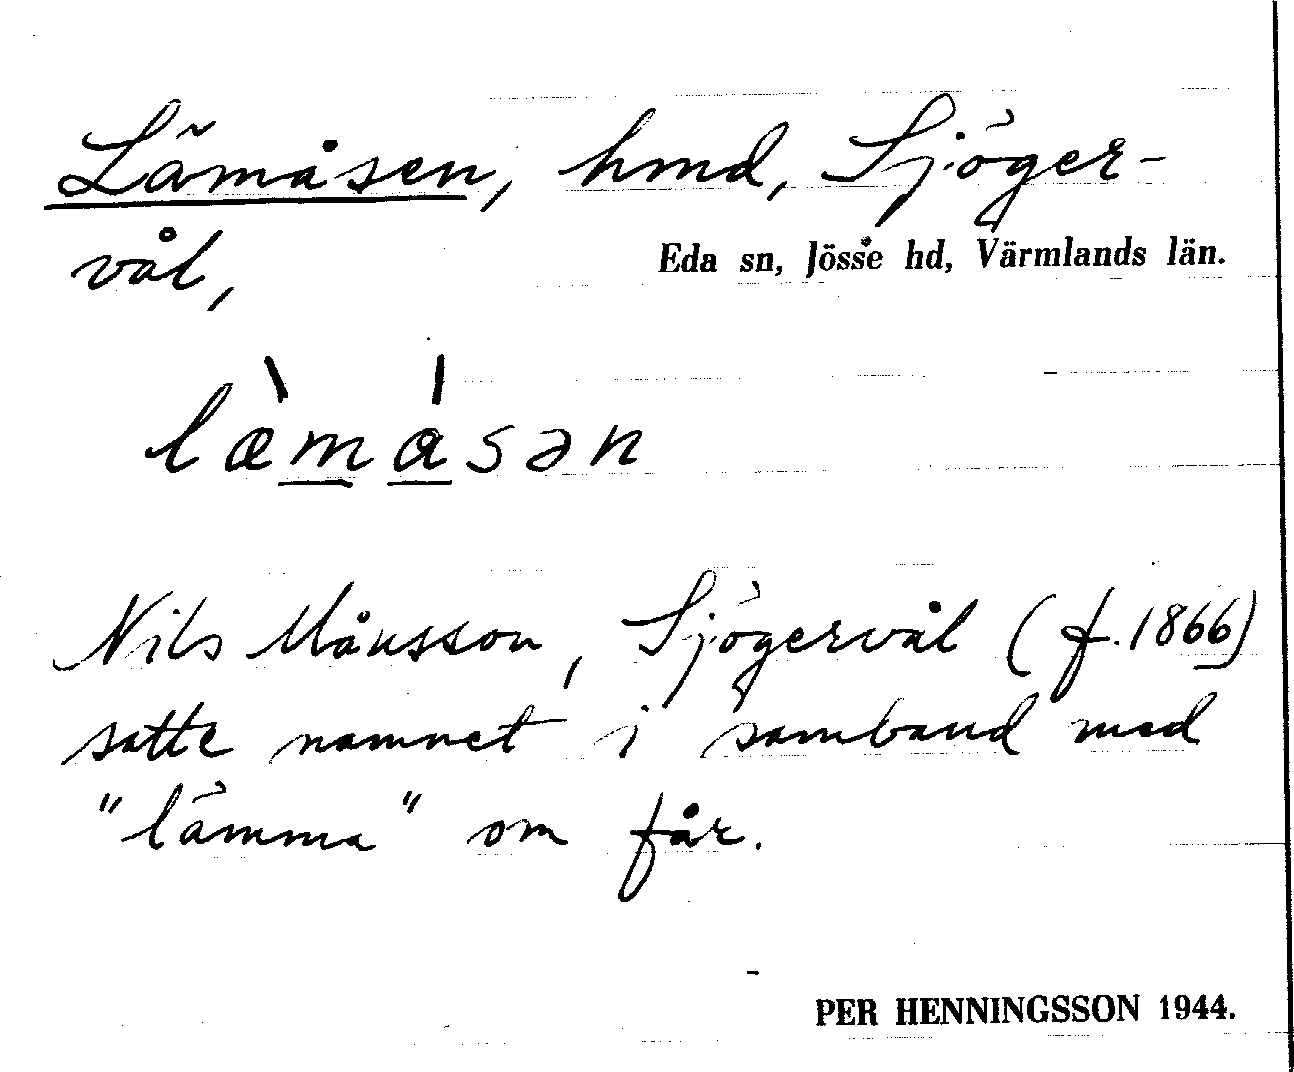 Lämåsen, hmd, Sjöger-
vål,
Eda sn, Jösse hd, Värmlands län.
læ̀mǻsən
Nils Månsson, Sjögervål (f. 1866)
satte namnet i samband med
"lämma" om får.
PER HENNINGSSON 1944.